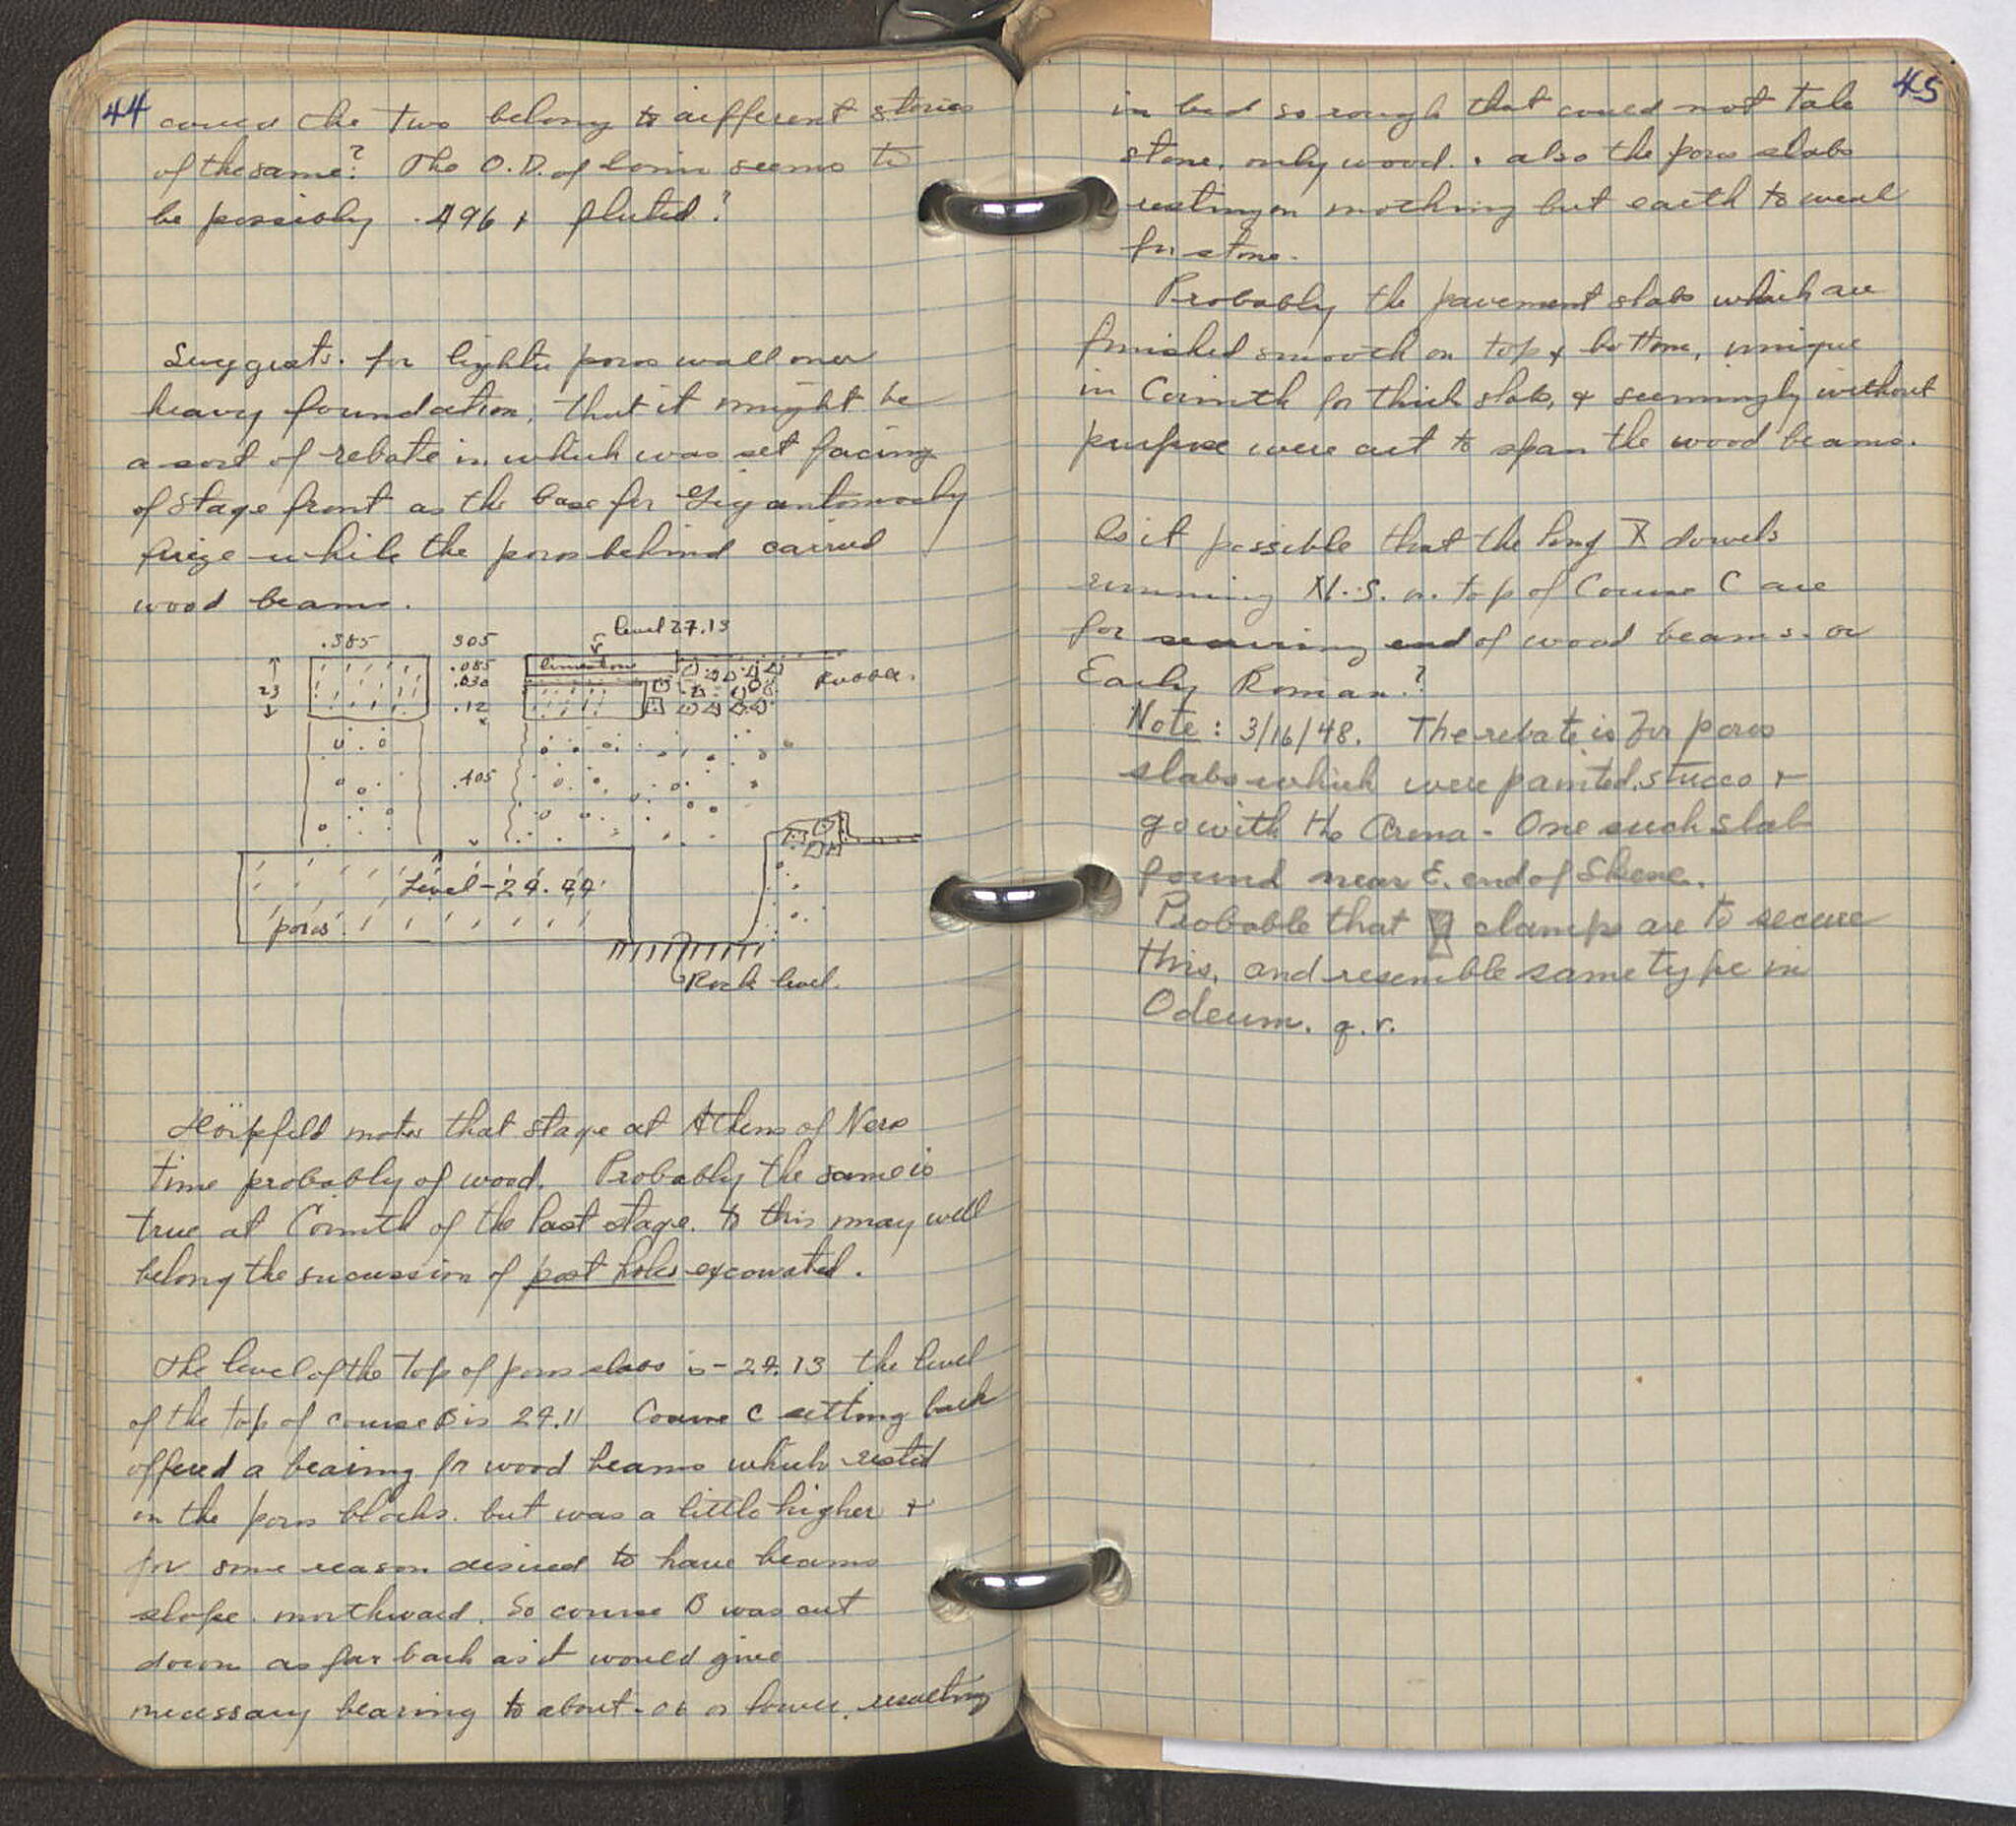 44
could the two belong to different stories
of the same? The O.D. of Ionic seems to
be possibly .496 + fluted?
Suggests. for lighter poros wall over
heavy foundation, that it might be
a sort of rebate in which was set facing
of stage front as the base for Gigantomachy
frieze while the poros behind carried
wood beams.
level 27.13
.385 305
.085 limestone
.030 Rubble.
23
.12
.405
Level - 27.77
poros
Rock level.
Dörpfeld notes that stage at Athens of Nero
time probably of wood. Probably the same is
true at Corinth of the last stage. to this may well
belong the sucussion of post holes excavated.
The level of the top of poros slabs is - 27.13 the level
of the top of course B is 27.11 Course C setting back
offered a bearing for wood beams which rested
on the poros blocks. but was a little higher +
for some reason desired to have beams
slope northward. So course B was cut
down as far back as it would give
necessary bearing to about .06 or lower, resulting
45
in bed so rough that could not take
stone, only wood. also the poros slabs
resting on nothing but earth to weak
for stone.
Probably the pavement slabs which are
finished smooth on top & bottom, unique
in Corinth for thick slabs, & seemingly without
purpose were cut to span the wood beams.
Is it possible that the long dowels
running N.-S. on top of Course C are
for securing end of wood beams. or
Early Roman?
Note: 3/16/48. The rebate is for poros
slabs which were painted stucco +
go with the Arena - One such slab
found near E. end of Skene.
Probable that clamps are to secure
this, and resemble same type in
Odeum. q.v.